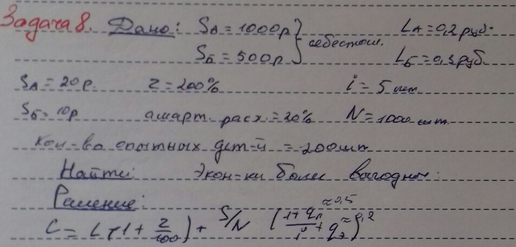 Задача 8. Дано: SА = 1000р } себестоим. LА = 0,2 руб.
SБ = 500р LБ = 0,3 руб
SА = 20р. z = 200% i = 5 шт
SБ = 10р аморт. расх = 20% N = 1000 шт.
Кол-во опытных дет-й = 200шт
Найти: Экон-ки более выгодн.
Решение:
C = L(1 + z/100) + S/N (1+q₁/i + q₂) ≈0,5 ≈0,2